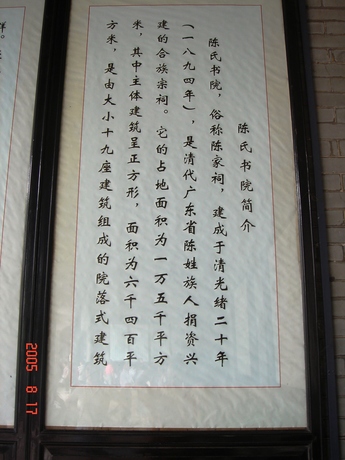 陈氏书院简介
陈氏书院，俗称陈家祠，建成于清光绪二十年
（一八九四年），是清代广东省陈姓族人捐资兴
建的合族宗祠。它的占地面积为一万五千平方
米，其中主体建筑呈正方形，面积为六千四百平
方米，是由大小十九座建筑组成的院落式建筑
2005 8 17